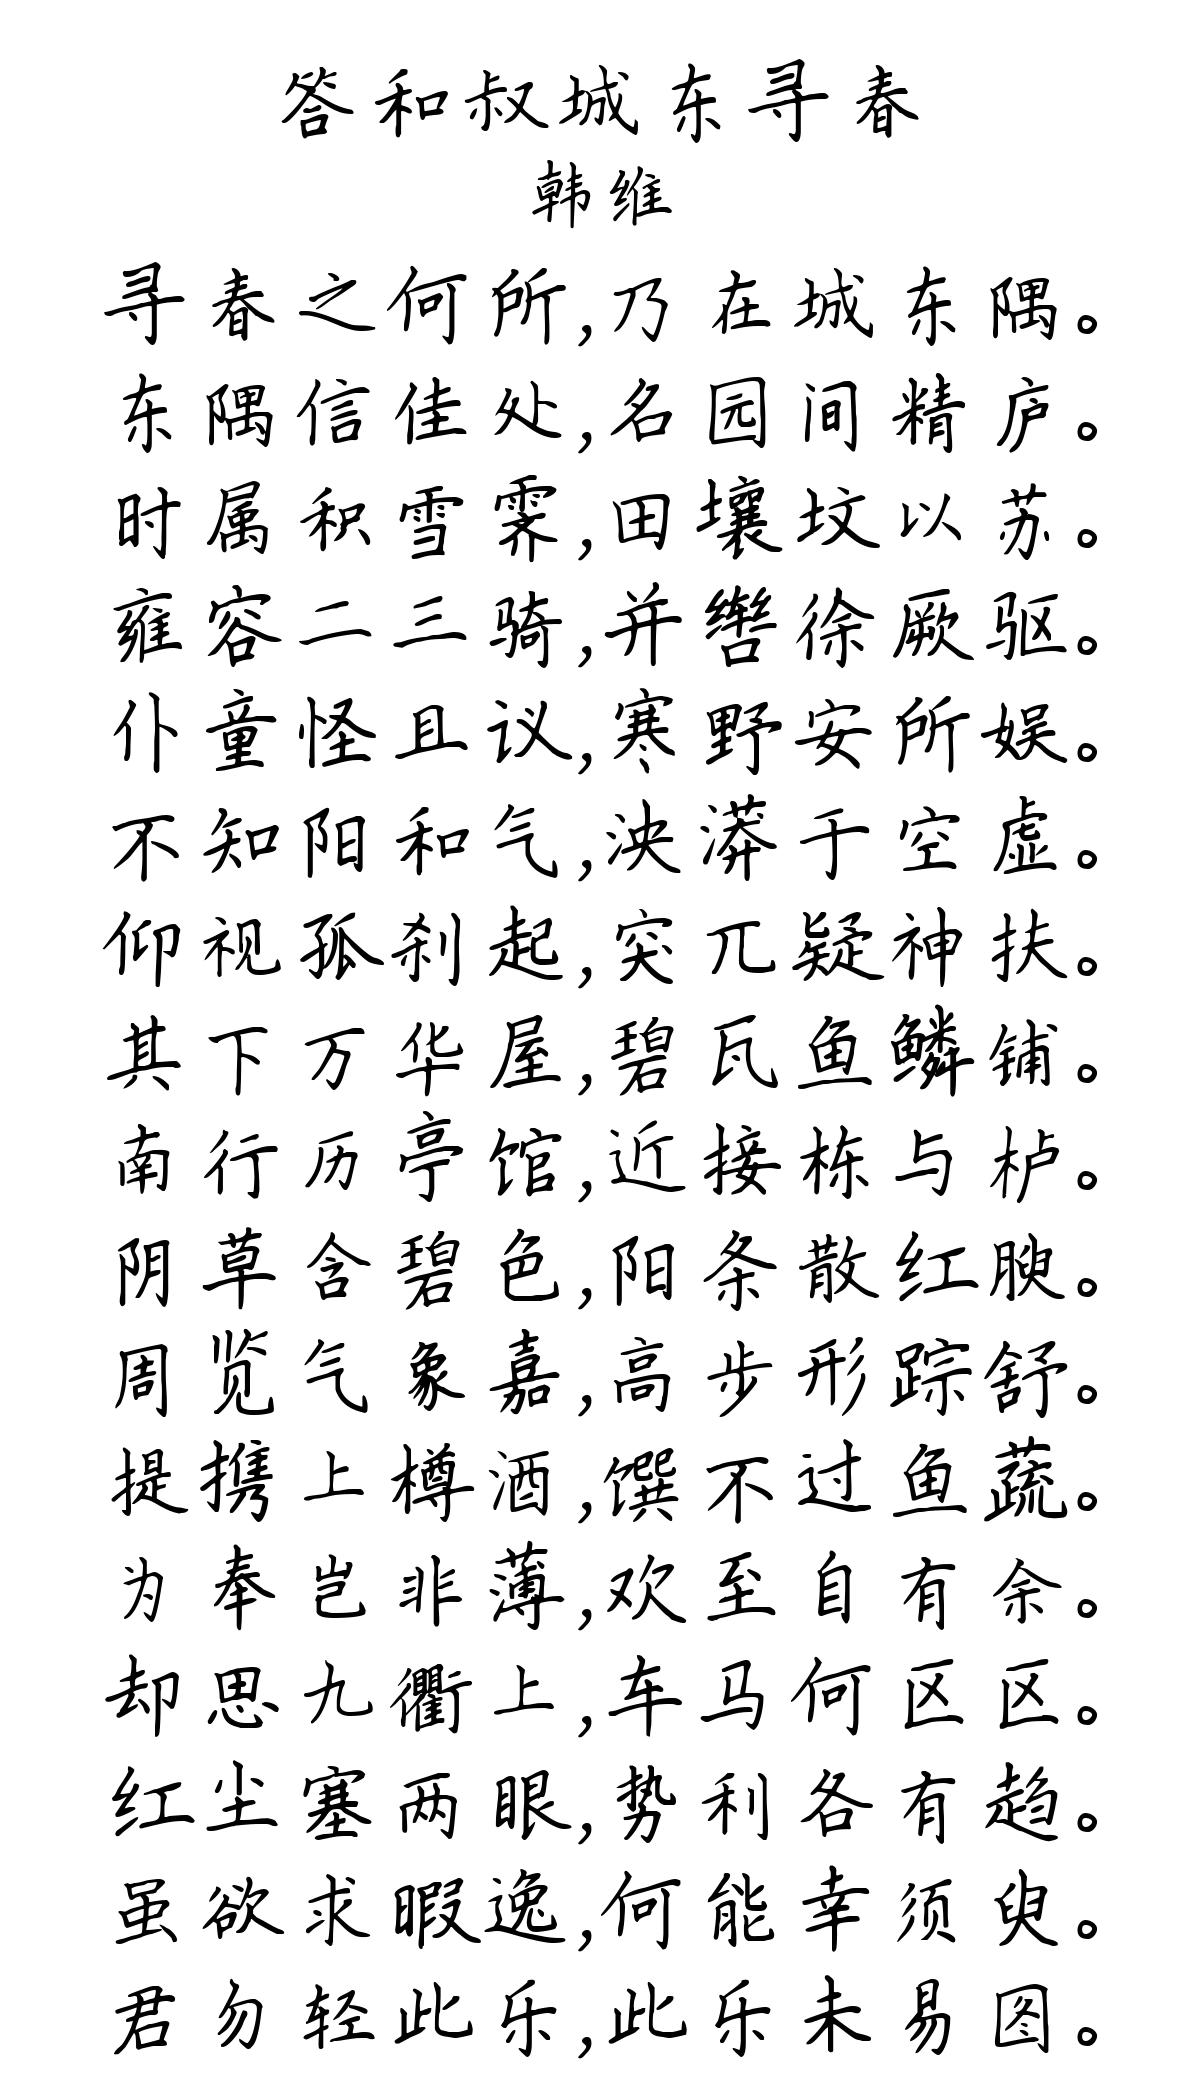 答和叔城东寻春
韩维
寻春之何所,乃在城东隅。
东隅信佳处,名园间精庐。
时属积雪霁,田壤坟以苏。
雍容二三骑,并辔徐厥驱。
仆童怪且议,寒野安所娱。
不知阳和气,泱漭于空虚。
仰视孤刹起,突兀疑神扶。
其下万华屋,碧瓦鱼鳞铺。
南行历亭馆,近接栋与栌。
阴草含碧色,阳条散红腴。
周览气象嘉,高步形踪舒。
提携上樽酒,馔不过鱼蔬。
为奉岂非薄,欢至自有余。
却思九衢上,车马何区区。
红尘塞两眼,势利各有趋。
虽欲求暇逸,何能幸须臾。
君勿轻此乐,此乐未易图。